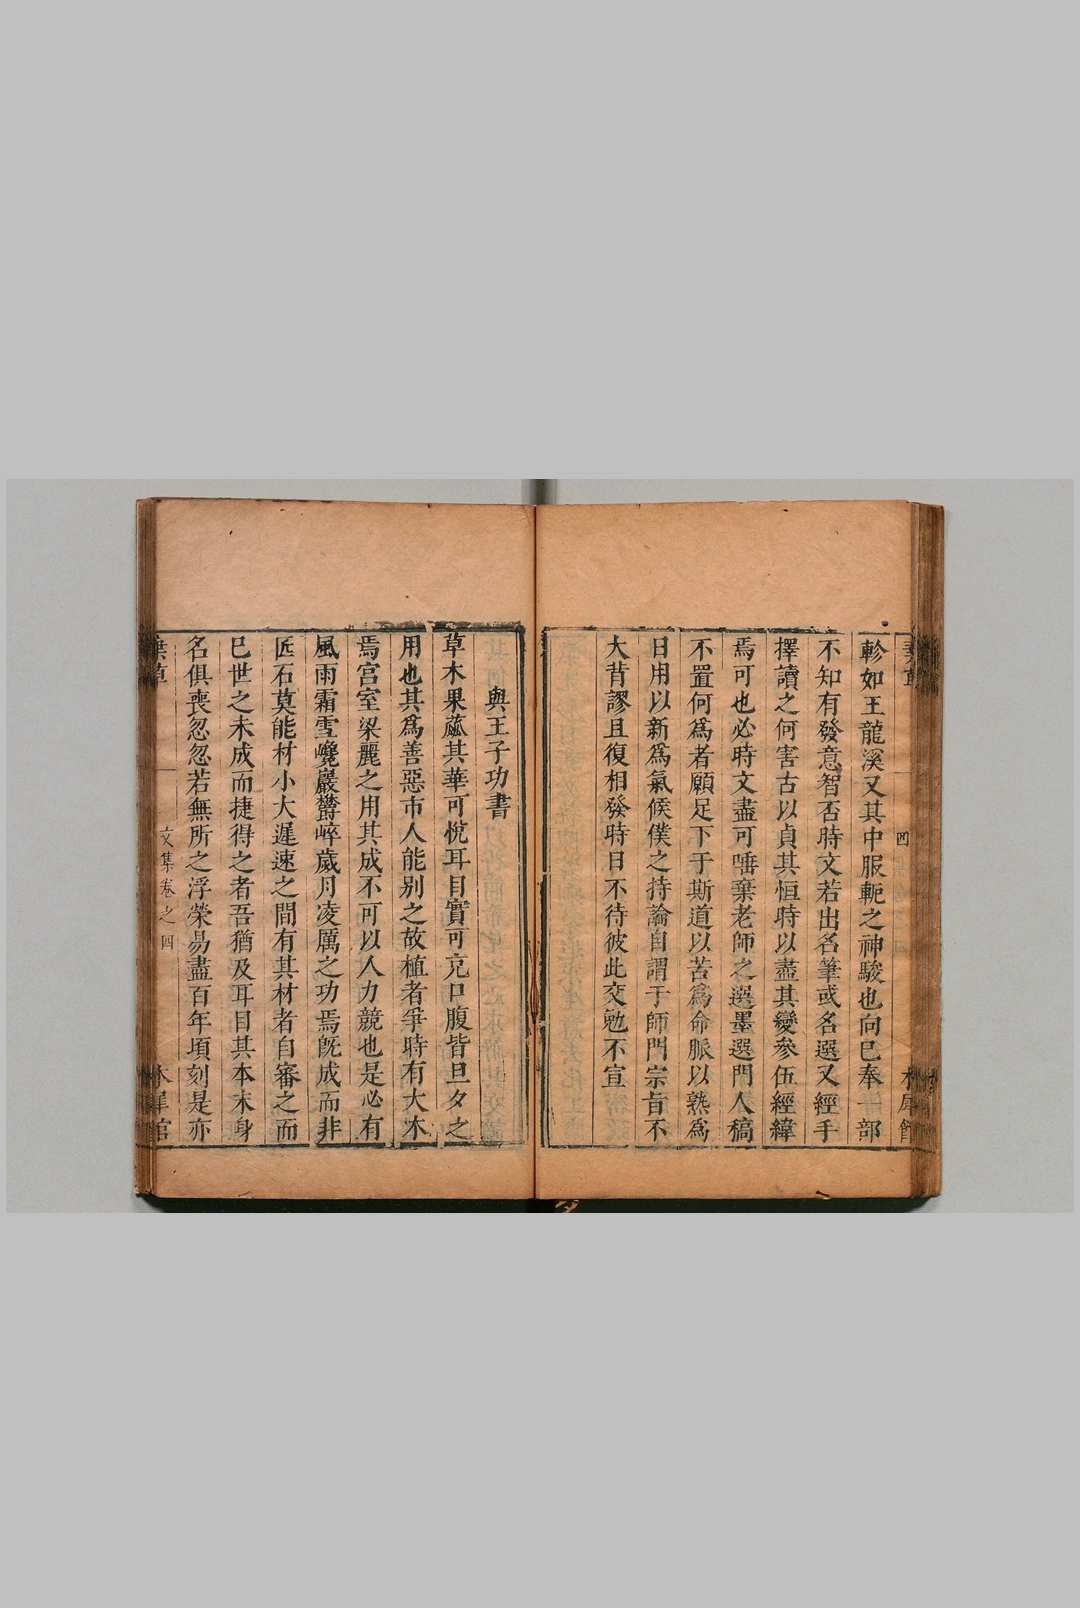 軫如王龍溪又其中服軛之神駿也向已奉一部
不知有發意智否時文若出名筆或名選又經手
擇讀之何害古以貞其恒時以盡其變參伍經緯
焉可也必時文盡可唾棄老師之選墨選門人稿
不置何爲者願足下于斯道以苦爲命脈以熟爲
日用以新爲氣候僕之持論自謂于師門宗旨不
大背謬且復相發時日不待彼此交勉不宣
與王子功書
草木果蓏其華可悅耳目實可充口腹皆旦夕之
用也其爲善惡市人能别之故植者爭時有大木
焉宫室梁麗之用其成不可以人力競也是必有
風雨霜雪巉巖欝崪歲月凌厲之功焉既成而非
匠石莫能材小大遲速之間有其材者自審之而
已世之未成而捷得之者吾猶及耳目其本末身
名俱喪忽忽若無所之浮榮易盡百年頃刻是亦
文集卷之四